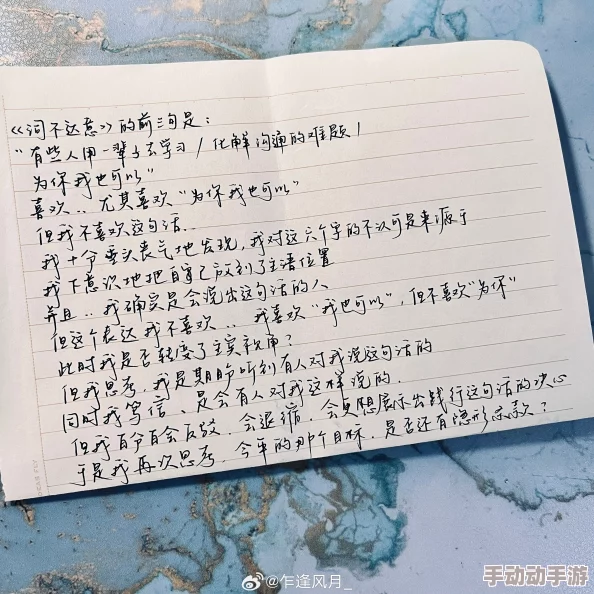 《词不达意》的前三句是：
“有些人用一辈子去学习/化解沟通的难题/
为你我也可以”
喜欢..尤其喜欢“为你我也可以”
但我不喜欢这句话..
我十分垂头丧气地发现，我对这六个字的不认可是来源于
我下意识地把自己放到了主语位置
并且..我确实是会说出这句话的人
但这个表达我不喜欢..我喜欢“我也可以”，但不喜欢“为你”
此时我是否转变了主宾视角？
但我思考，我是期盼听到有人对我说这句话的
同时我笃信、是会有人对我这样说的.
但我百分百会反驳.会退缩.会更想展示出践行这句话的决心
于是我再次思考.今年的那个目标.是否还有隐形条款？
@乍逢风月_
手动动手游